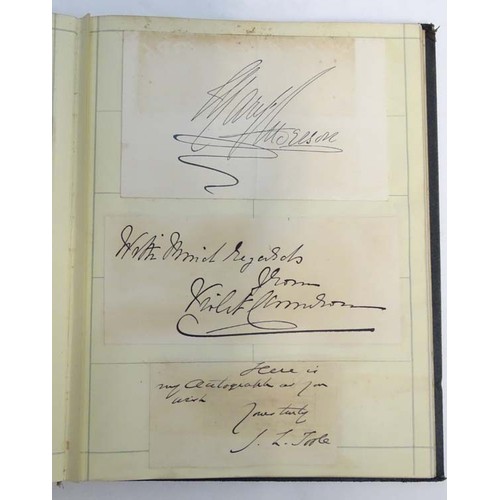 Mary
With Kind Regards
from
Violet
Here is
my Autograph as you
wish
Yours truly
J. L. Toole